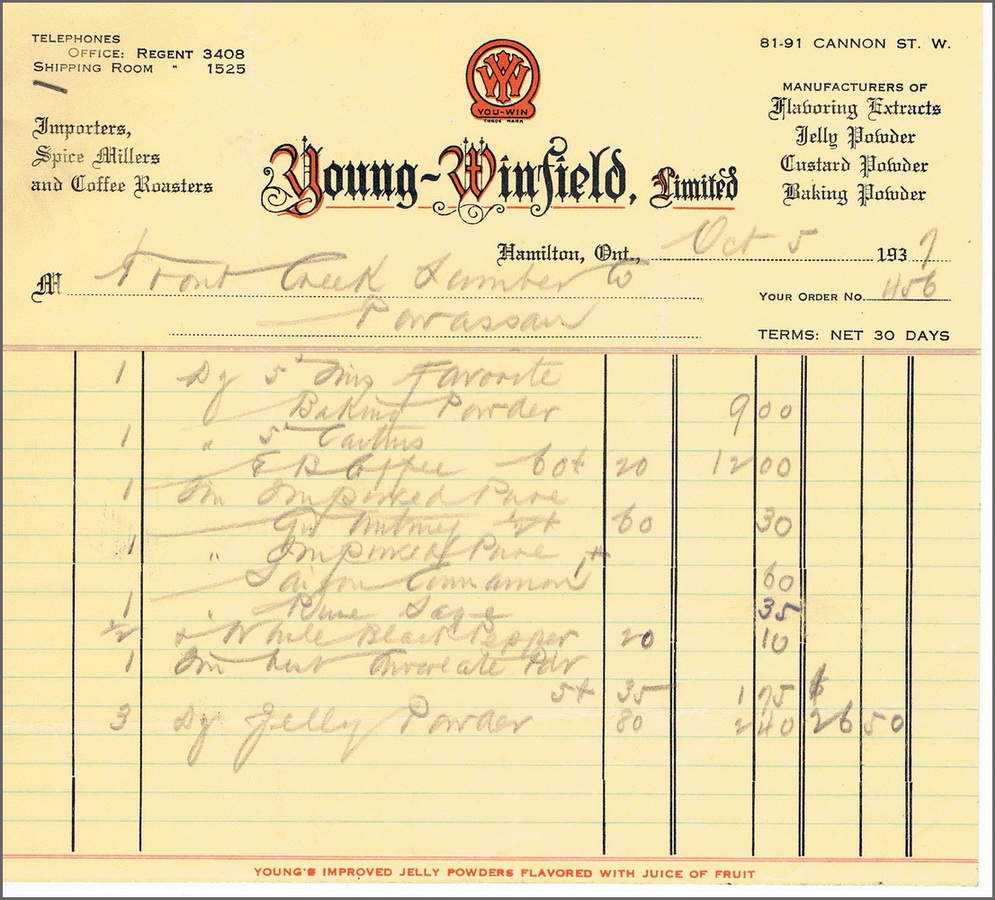 TELEPHONES
OFFICE: REGENT 3408
SHIPPING ROOM " 1525
81-91 CANNON ST. W.
YW
YOU-WIN
TRADE MARK
Importers,
Spice Millers
and Coffee Roasters
MANUFACTURERS OF
Flavoring Extracts
Jelly Powder
Custard Powder
Baking Powder
Young-Winfield, Limited
Hamilton, Ont., Oct 5 1937
M Trout Creek Lumber Co
YOUR ORDER NO. 456
Powassan
TERMS: NET 30 DAYS
1 Dz 5# Tins Favorite
Baking Powder 9 00
1 " 5#
Coffee 60# 20 12 00
1 Tin Imported Pure
Nutmeg 1/2# 60 30
1 " Imported Pure
Saigon Cinnamon 1# 60
1 " Pure Sage 35
1/2 # White Black Pepper 20 10
1 Tin best Chocolate Pdr
5# 35 1 75 $
3 Dz Jelly Powder 80 2 40 26 50
YOUNG'S IMPROVED JELLY POWDERS FLAVORED WITH JUICE OF FRUIT